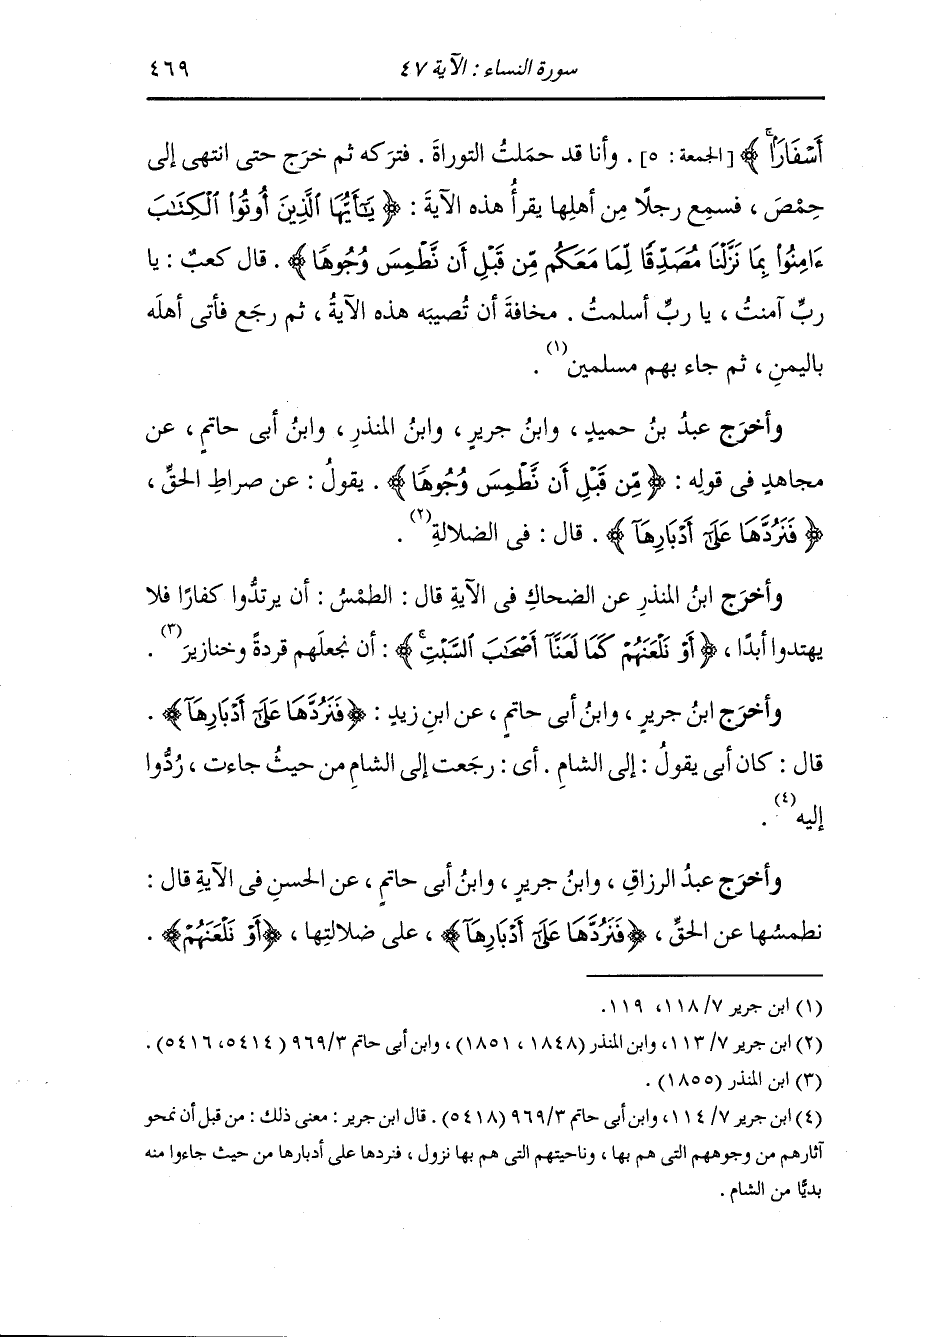 سورة النساء : الآية ٤٧ ٤٦٩
أَسْفَارًاۚ ﴾ [الجمعة : ٥] . وأنا قد حمَلتُ التوراةَ . فترَكه ثم خرَج حتى انتهى إلى
حِمْصَ ، فسمِع رجلًا مِن أهلِها يقرأُ هذه الآيةَ : ﴿ يَٰٓأَيُّهَا ٱلَّذِينَ أُوتُوا۟ ٱلْكِتَٰبَ
ءَامِنُوا۟ بِمَا نَزَّلْنَا مُصَدِّقًا لِّمَا مَعَكُم مِّن قَبْلِ أَن نَّطْمِسَ وُجُوهًا ﴾ . قال كعبٌ : يا
ربِّ آمنتُ ، يا ربِّ أسلمتُ . مخافةَ أن تُصيبَه هذه الآيةُ ، ثم رجَع فأتى أهلَه
باليمنِ ، ثم جاء بهم مسلمين(١) .
وأخرَج عبدُ بنُ حميدٍ ، وابنُ جريرٍ ، وابنُ المنذرِ ، وابنُ أبى حاتمٍ ، عن
مجاهدٍ فى قولِه : ﴿ مِّن قَبْلِ أَن نَّطْمِسَ وُجُوهًا ﴾ . يقولُ : عن صراطِ الحقِّ ،
﴿ فَنَرُدَّهَا عَلَىٰٓ أَدْبَارِهَآ ﴾ . قال : فى الضلالةِ(٢) .
وأخرَج ابنُ المنذرِ عن الضحاكِ فى الآيةِ قال : الطمْسُ : أن يرتدُّوا كفارًا فلا
يهتدوا أبدًا ، ﴿ أَوْ نَلْعَنَهُمْ كَمَا لَعَنَّآ أَصْحَٰبَ ٱلسَّبْتِۚ ﴾ : أن نجعلَهم قردةً وخنازيرَ(٣) .
وأخرَج ابنُ جريرٍ ، وابنُ أبى حاتمٍ ، عن ابنِ زيدٍ : ﴿فَنَرُدَّهَا عَلَىٰٓ أَدْبَارِهَآ﴾ .
قال : كان أبى يقولُ : إلى الشامِ . أى : رجَعت إلى الشامِ من حيثُ جاءت ، رُدُّوا
إليه(٤) .
وأخرَج عبدُ الرزاقِ ، وابنُ جريرٍ ، وابنُ أبى حاتمٍ ، عن الحسنِ فى الآيةِ قال :
نطمسُها عن الحقِّ ، ﴿فَنَرُدَّهَا عَلَىٰٓ أَدْبَارِهَآ﴾ ، على ضلالتِها ، ﴿أَوْ نَلْعَنَهُمْ﴾ .
(١) ابن جرير ٧/ ١١٨، ١١٩.
(٢) ابن جرير ٧/ ١١٣، وابن المنذر (١٨٤٨ ، ١٨٥١) ، وابن أبى حاتم ٩٦٩/٣ (٥٤١٤، ٥٤١٦) .
(٣) ابن المنذر (١٨٥٥) .
(٤) ابن جرير ٧/ ١١٤، وابن أبى حاتم ٩٦٩/٣ (٥٤١٨) . قال ابن جرير : معنى ذلك : من قبل أن نمحو
آثارهم من وجوههم التى هم بها ، وناحيتهم التى هم بها نزول ، فنردها على أدبارها من حيث جاءوا منه
بديًّا من الشام .